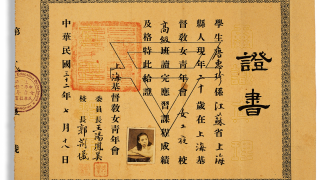 證書
學生唐惠珍係江蘇省上海
縣人現年二十歲在上海基
督教女青年會女工夜校
高級班讀完應習課程成績
及格特此給證
上海基督教女青年會
委員長王
校長
中華民國三十二年七月十八日
第
號